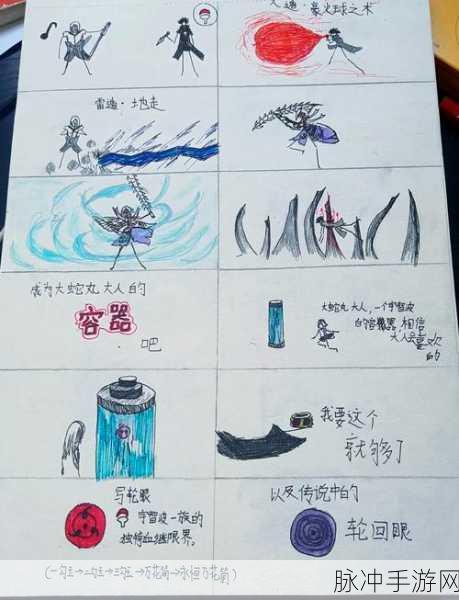 火遁·豪火球之术
雷遁·地走
成为大蛇丸大人的
容器
吧
大蛇丸大人，一个宇智波
的容器，相信
大人会喜欢
的
我要这个
就够了
写轮眼
宇智波一族的
独特血继限界。
以及传说中的
轮回眼
(一勾玉→二勾玉→三勾玉→万花筒→永恒万花筒)
脉冲手游网